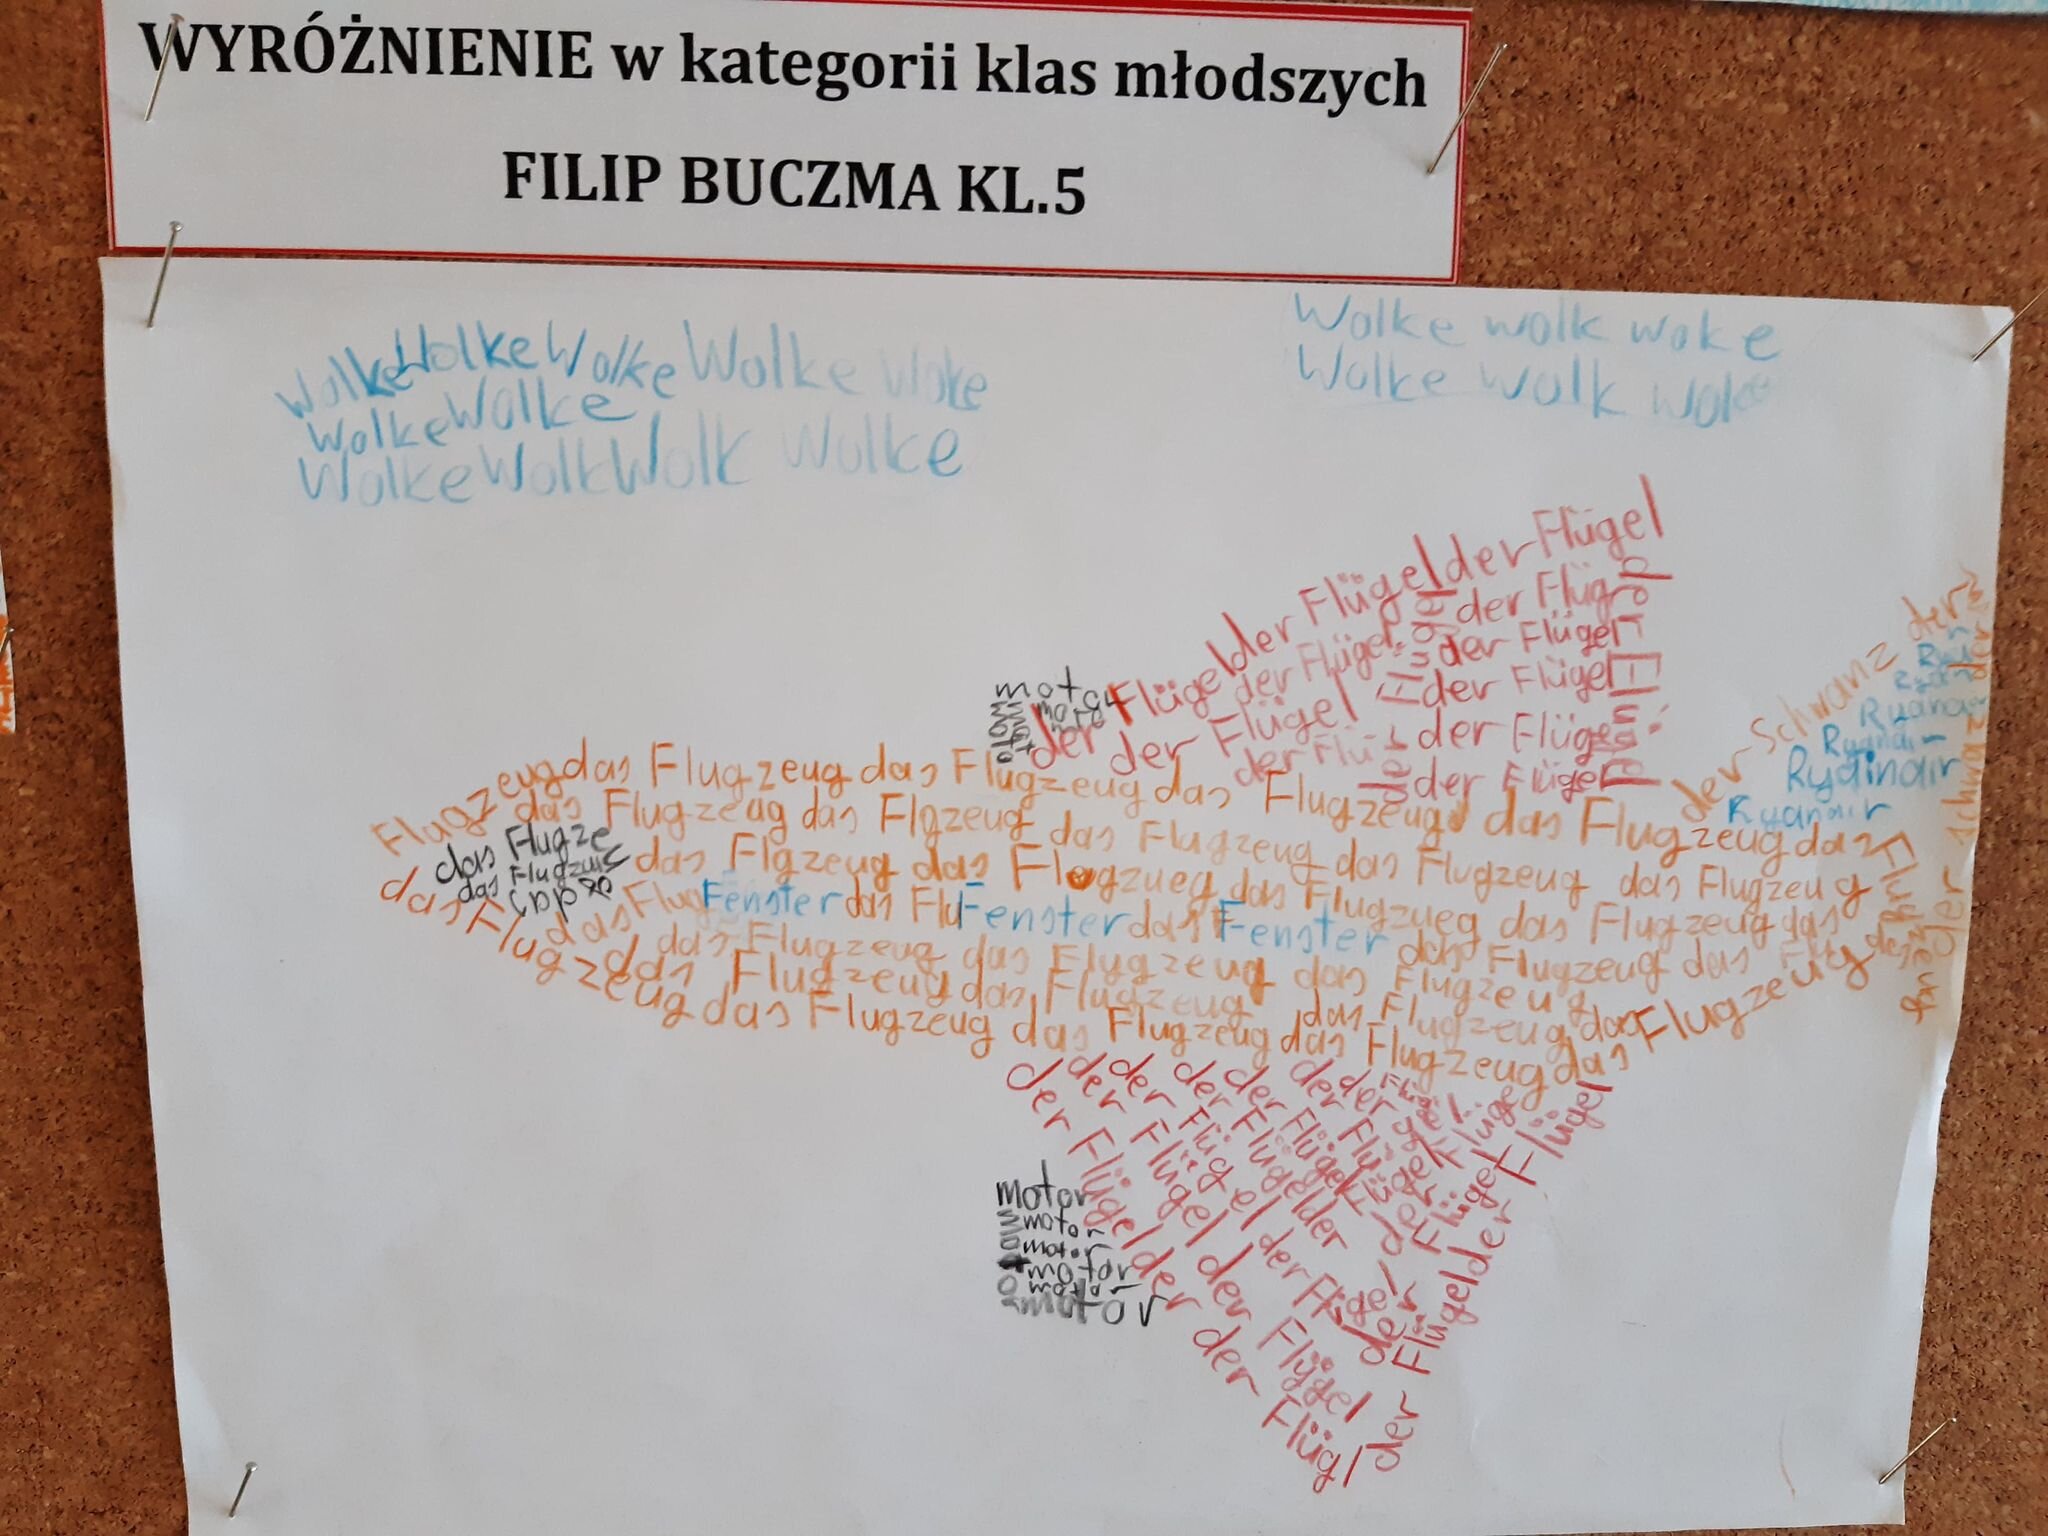 WYRÓŻNIENIE w kategorii klas młodszych
FILIP BUCZMA KL.5
Wolke Wolke Wolke Wolke Wolke
Wolke Wolke
Wolke Wolk Wolk Wolke
Wolke wolk woke
Wolke wolk woke
der Flügel der Flügel der Flügel der Flügel
der Flügel der Flüg
der Flügel der Flügel
der Flügel der Flügel
der Flü der Flügel
der Flügel
motor
der Schwanz der
Ryanair
Rydinair
Ryanair
Flugzeug das Flugzeug das Flugzeug das Flugzeug das Flugzeug das
das Flugzeug das Flgzeug das Flugzeug das Flugzeug das Flugzeug
das Flugze
das Flugzeug
das Flgzeug das Flugzueg das Flugzueg das Flugzeug das
das Flug Fenster das Flu Fenster das Fenster das Flugzeug das
das Flugzeug das Flugzeug das Flugzeug
das Flugzeug das Flugzeug das Flugzeug das
das Flugzeug das Flugzeug das Flugzeug das Flugzeug das Flugzeug
der Flügel der Flügl
der Flügel der Flügel
der Flügel der Flügel
der Flügel der
der Flügel
der Flügel der Flügel der Flügel
motor
motor
motor
motor
motor
motor